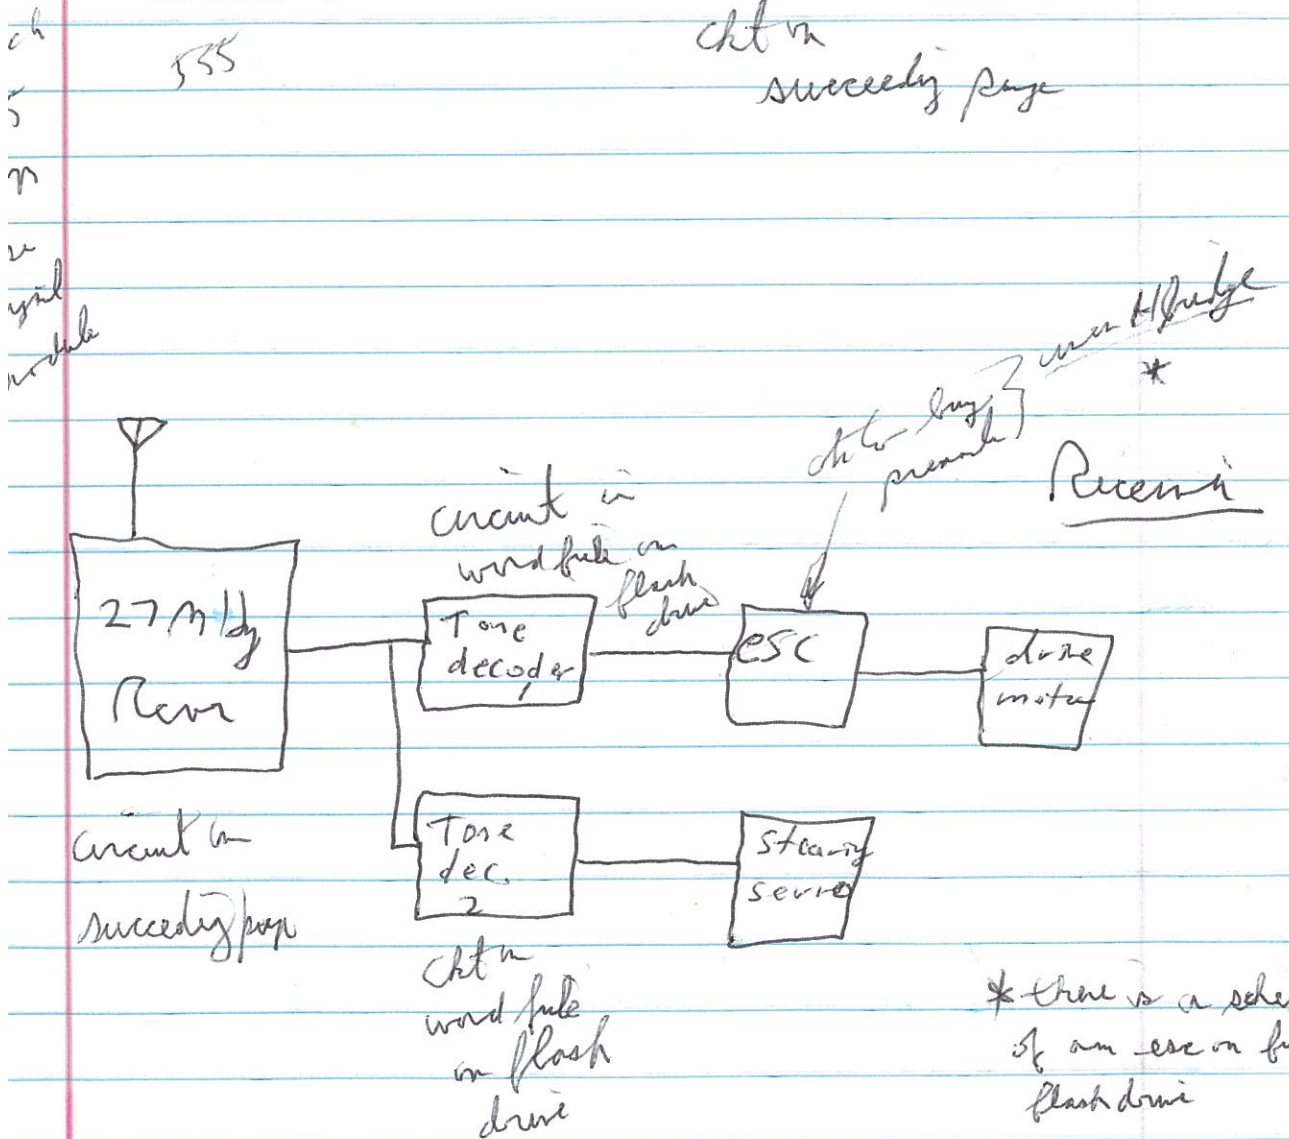 ch
555
ckt on
succeeding page
5
module
uses H bridge
*
ckt or buy
premade
Receiver
circuit in
word file on
flash
drive
27 MHz
Rcvr
Tone
decoder
1
esc
drive
motor
circuit on
succeding page
Tone
dec.
2
steering
servo
ckt in
word file
on flash
drive
* there is a sche
of an esc on
flash drive